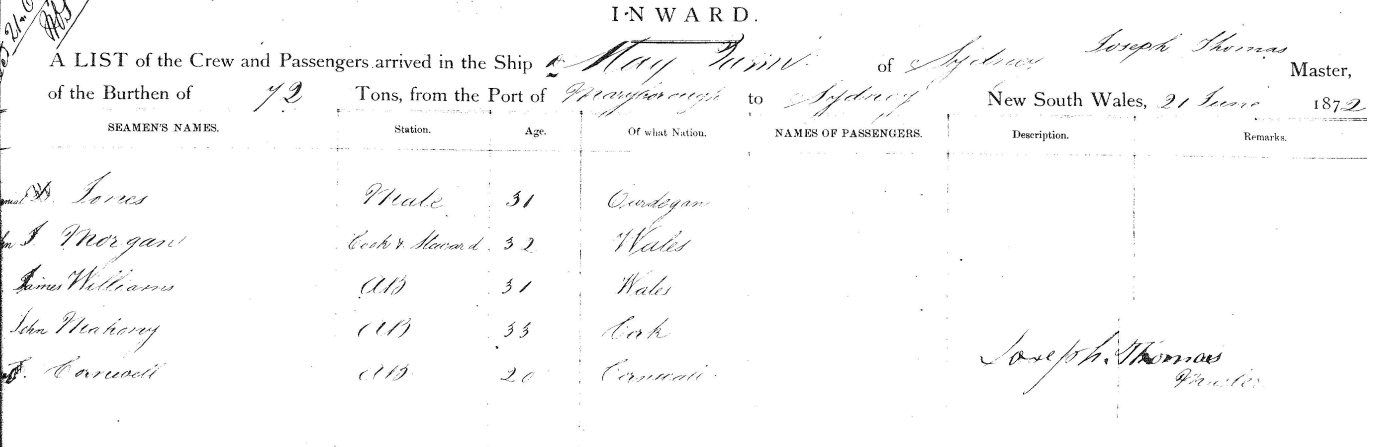 INWARD.
A LIST of the Crew and Passengers arrived in the Ship May of Sydney Joseph Thomas Master,
of the Burthen of 72 Tons, from the Port of Maryborough to Sydney New South Wales, 21 June 1872
SEAMEN'S NAMES. Station. Age. Of what Nation. NAMES OF PASSENGERS. Description. Remarks.
Jones Mate 31
J. Morgan Cook & Steward 32 Wales
James Williams AB 31 Wales
John Mahony AB 33 Cork
Cornwell AB 20 Cornwall
Joseph Thomas
Master